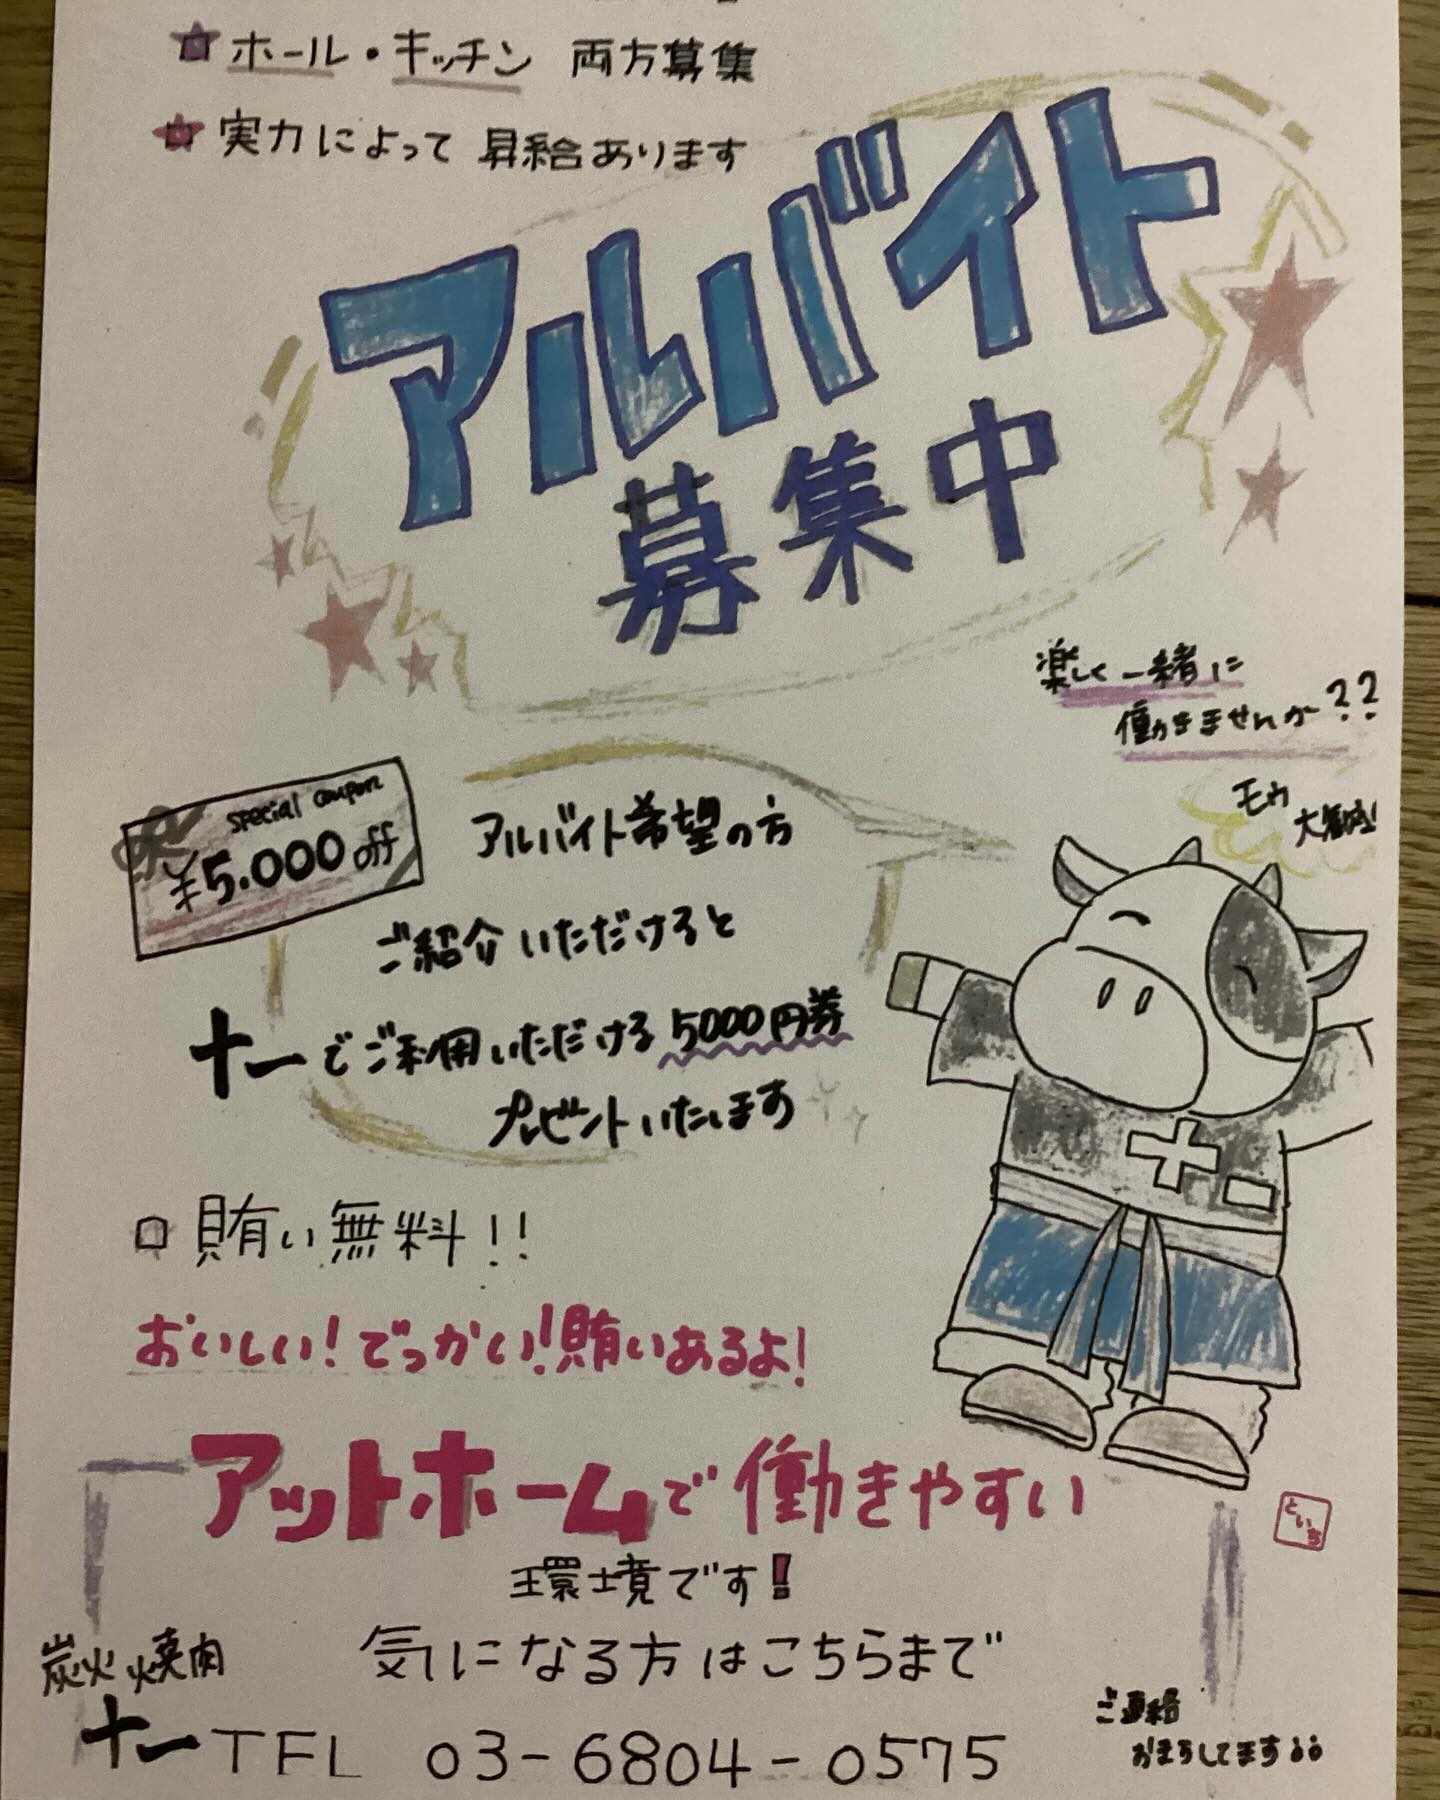 ホール・キッチン 両方募集
実力によって 昇給あります
アルバイト
募集中
楽しく一緒に
働きませんか??
モウ
大歓迎!
special coupon
¥5.000 off
アルバイト希望の方
ご紹介いただけると
十一でご利用いただける5000円券
プレゼントいたします
賄い無料!!
おいしい!でっかい!賄いあるよ!
アットホームで働きやすい
といち
環境です!
気になる方はこちらまで
炭火焼肉
十一 TEL 03-6804-0575
ご連絡
おまちしてます